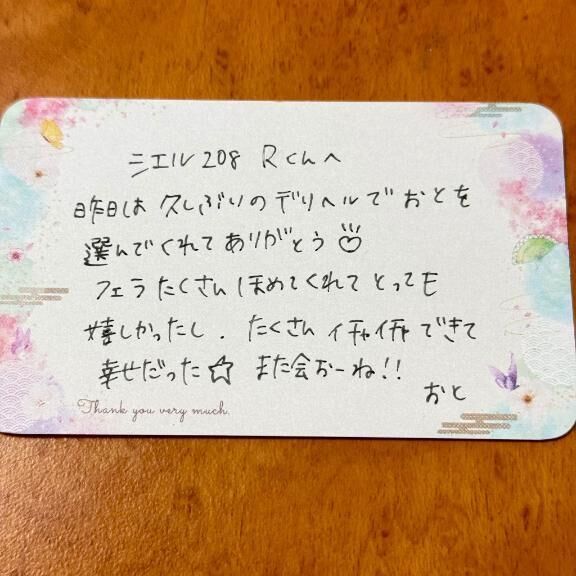 シエル208 Rくんへ
昨日は久しぶりのデリヘルでおとを
選んでくれてありがとう
フェラたくさんほめてくれてとっても
嬉しかったし、たくさんイチャイチャできて
幸せだった☆ また会おーね!!
おと
Thank you very much.